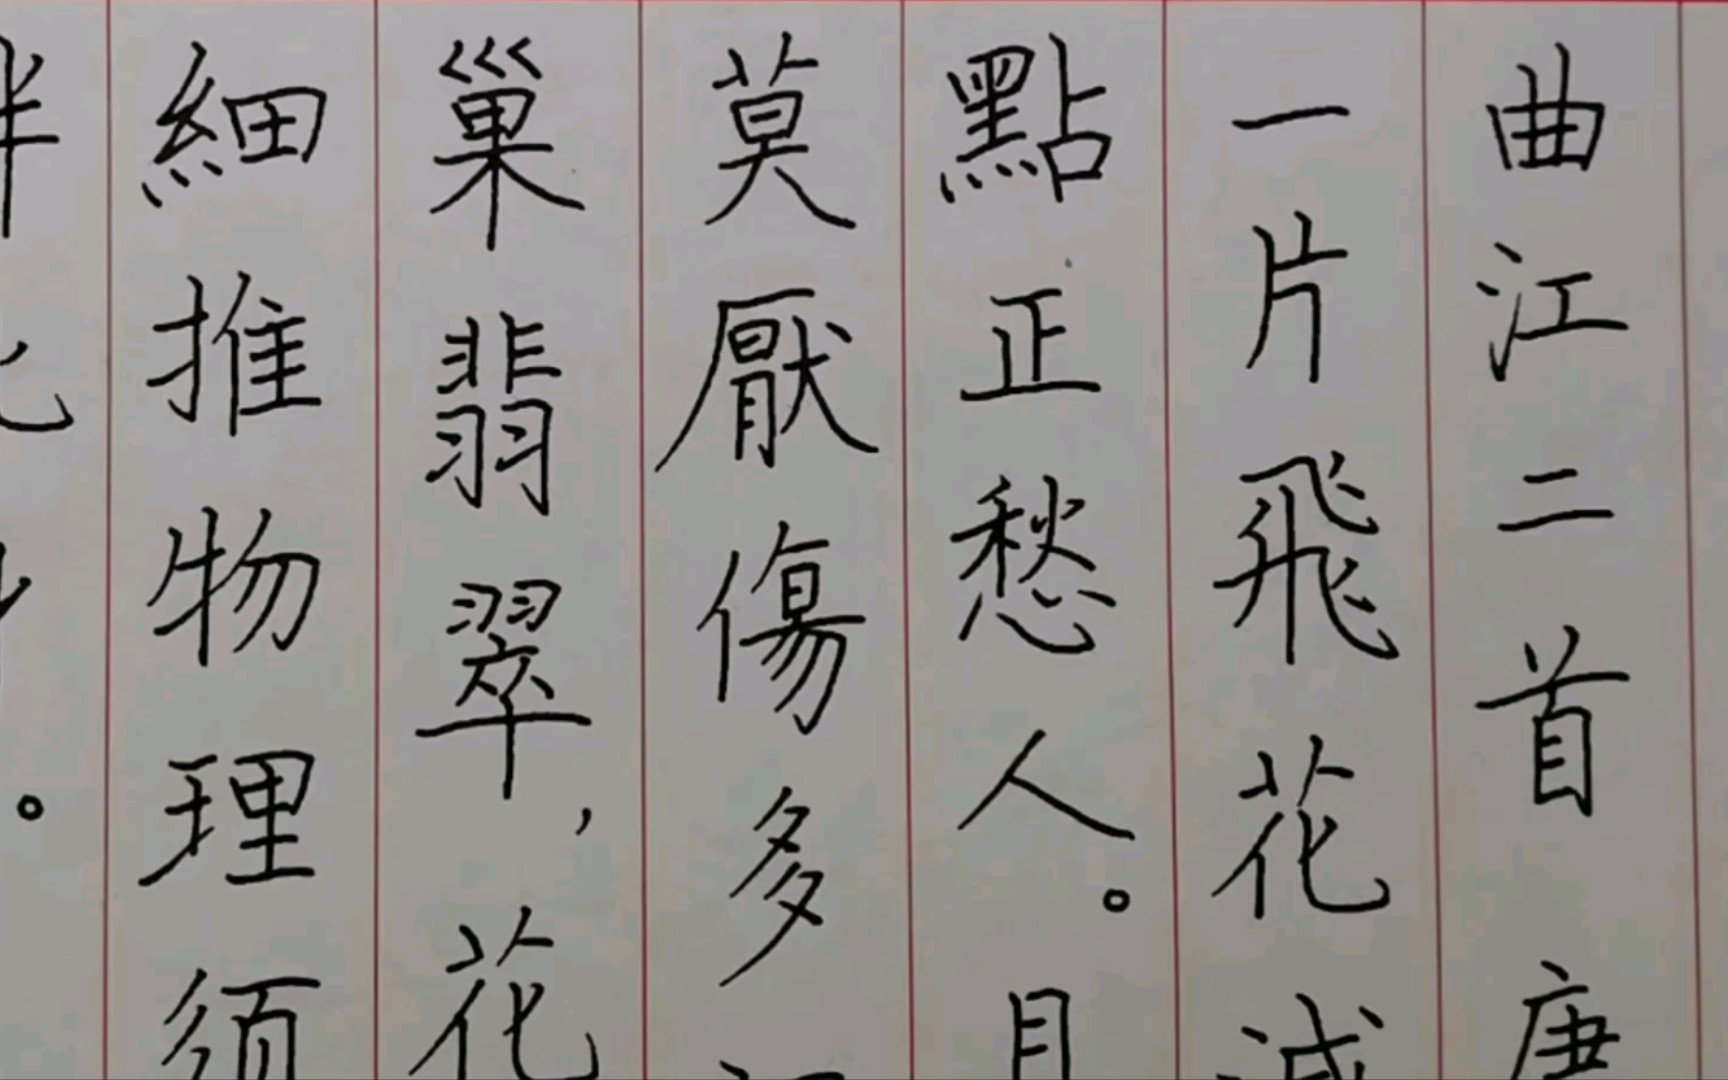 曲江二首 唐
一片飛花減
點正愁人。且
莫厭傷多
巢翡翠，花
細推物理須
絆
。